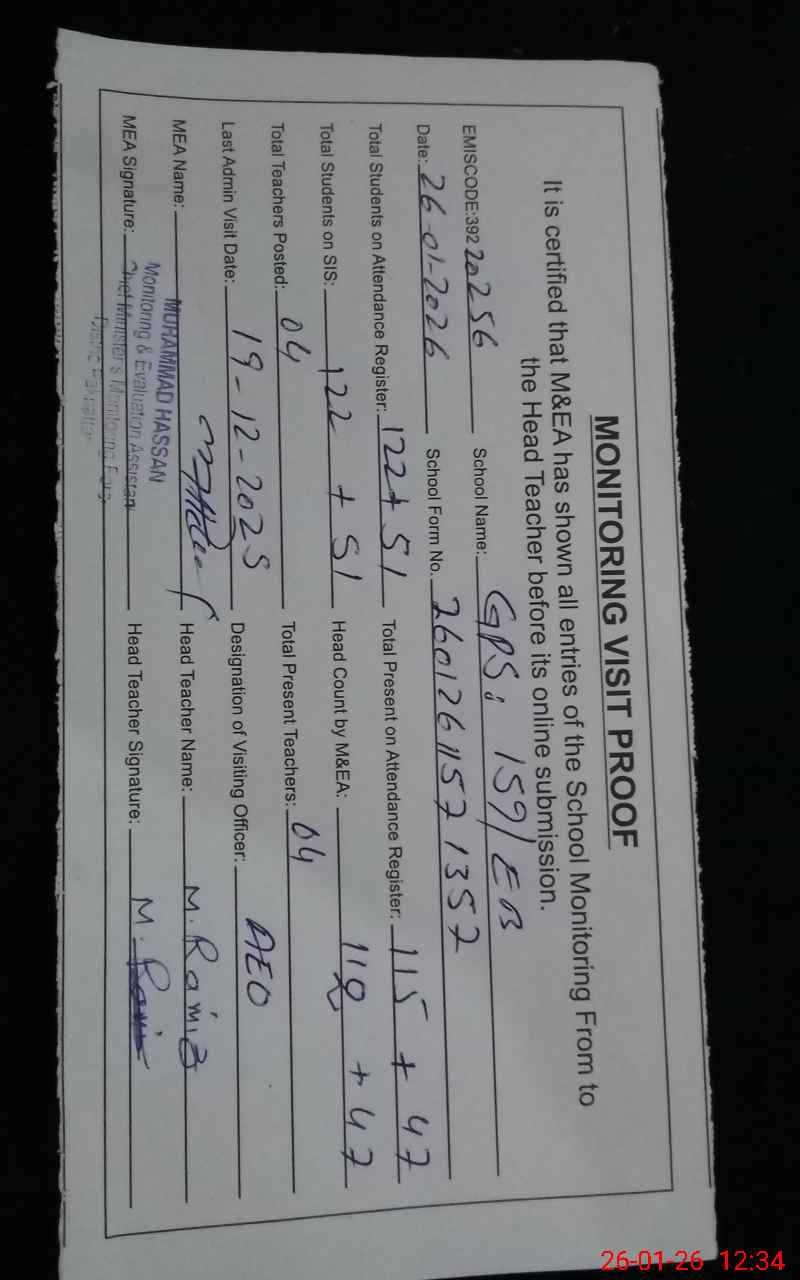 MONITORING VISIT PROOF
It is certified that M&EA has shown all entries of the School Monitoring From to
the Head Teacher before its online submission.
EMISCODE:392 20256 School Name: GPS: 159/EB
Date: 26-01-2026 School Form No. 26012611571357
Total Students on Attendance Register: 122+51 Total Present on Attendance Register: 115 + 47
Total Students on SIS: 122 + 51 Head Count by M&EA: + 47
Total Teachers Posted: 04 Total Present Teachers: 04
Last Admin Visit Date: 19-12-2025 Designation of Visiting Officer: AEO
MEA Name: Head Teacher Name: M. Ramiz
MEA Signature: Head Teacher Signature: M.
MUHAMMAD HASSAN
Monitoring & Evaluation Assistan
Chief Minister's Monitoring
26-01-26 12:34